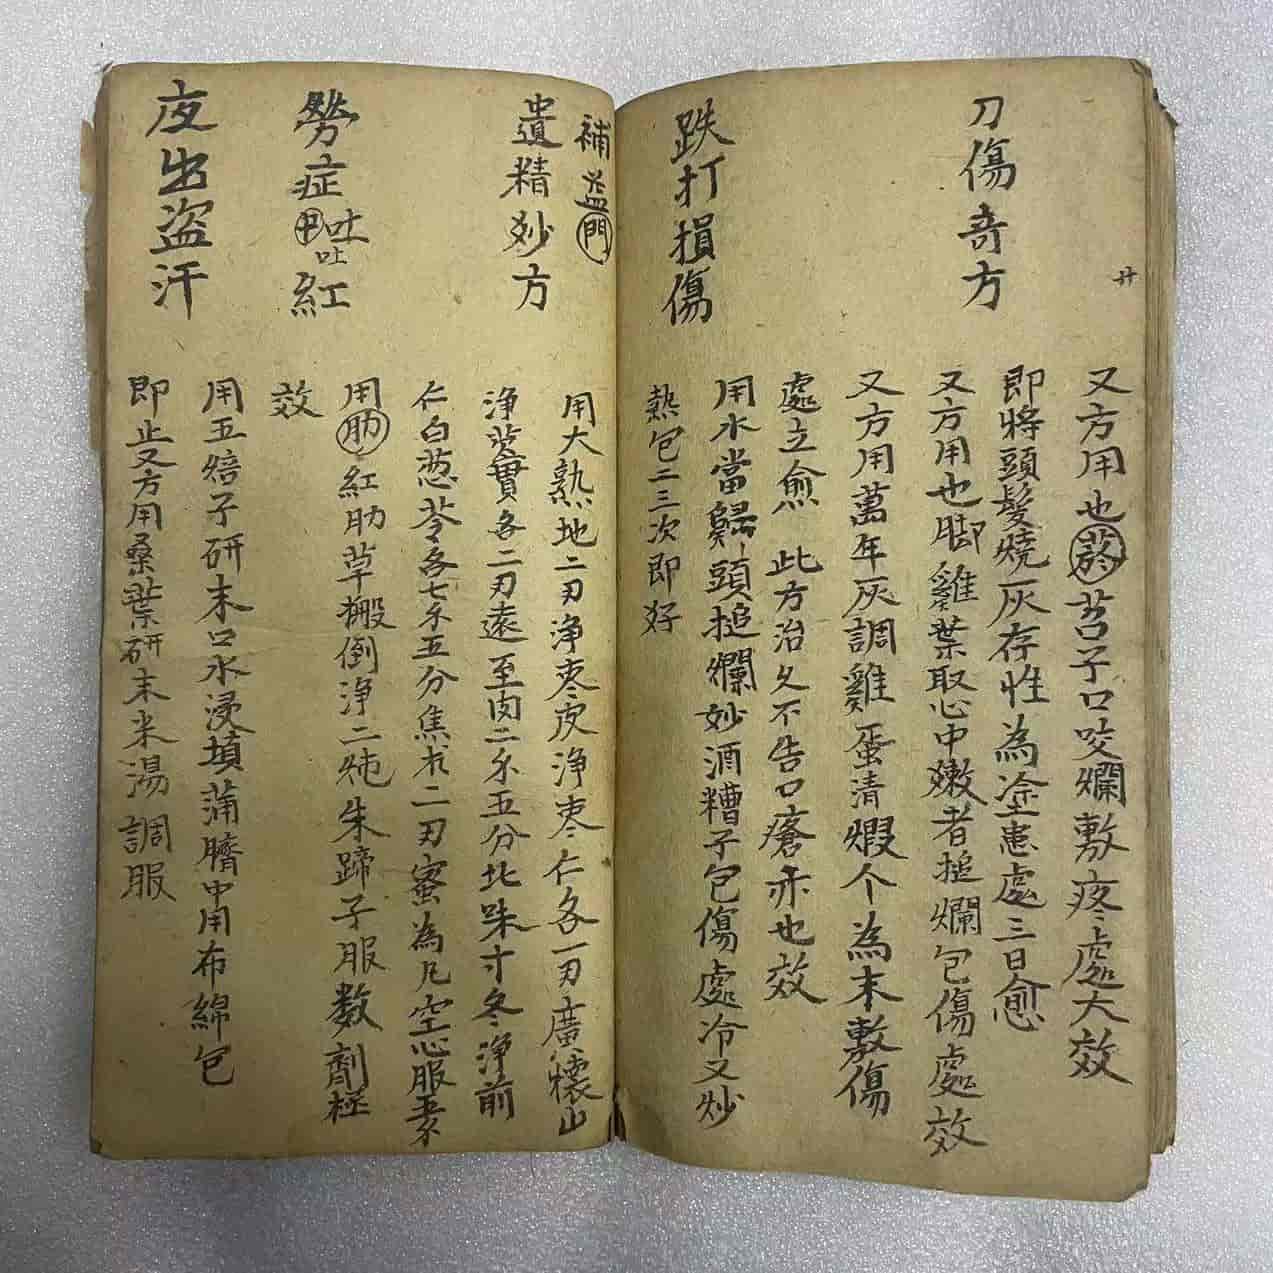 廿
又方用也菸苔子口咬爛敷疼處大效
刀傷奇方
即將頭髮燒灰存性為塗患處三日愈
又方用也脚雞葉取心中嫩者搥爛包傷處效
又方用萬年灰調雞蛋清煆个為末敷傷
處立愈 此方治久不告口瘡亦也效
跌打損傷
用水當歸頭搥爛妙酒糟子包傷處冷又炒
熱包二三次即好
補益門
遺精妙方
用大熟地二刃淨枣皮淨枣仁各一刃廣懷山
淨芡實各二刃遠至肉二乑五分北味寸冬淨前
仁白苓各七乑五分焦朮二刃蜜為凡空心服五乑
勞症吐吐紅
用肋紅肋草搬倒淨二炖朱蹄子服数劑極
效
夜出盜汗
用五焙子研末口水浸填蒲臍中用布綿包
即止又方用桑葉研末米湯調服